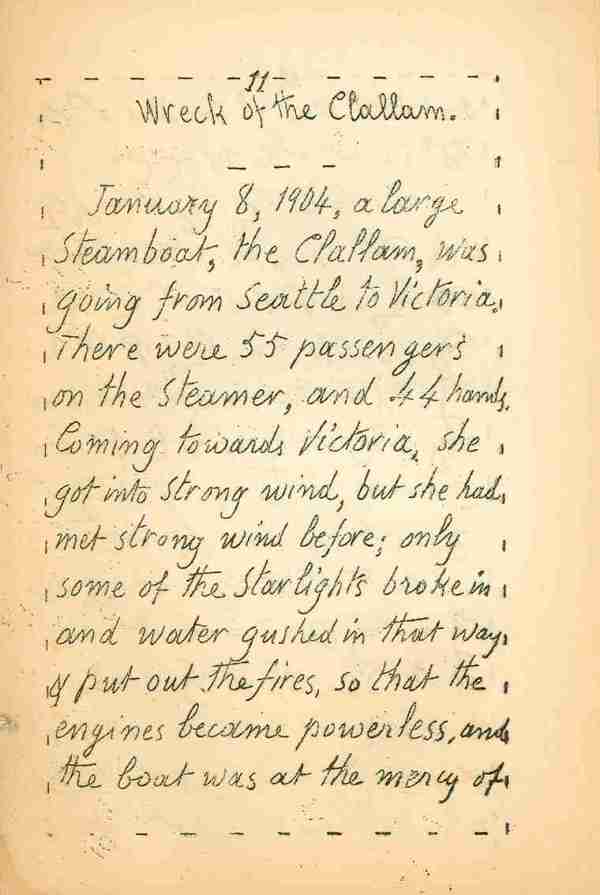 11
Wreck of the Clallam.
January 8, 1904, a large
Steamboat, the Clallam, was
going from Seattle to Victoria.
There were 55 passengers
on the Steamer, and 44 hands.
Coming towards Victoria, she
got into strong wind, but she had
met strong wind before; only
some of the Starlights broke in
and water gushed in that way
& put out the fires, so that the
engines became powerless, and
the boat was at the mercy of